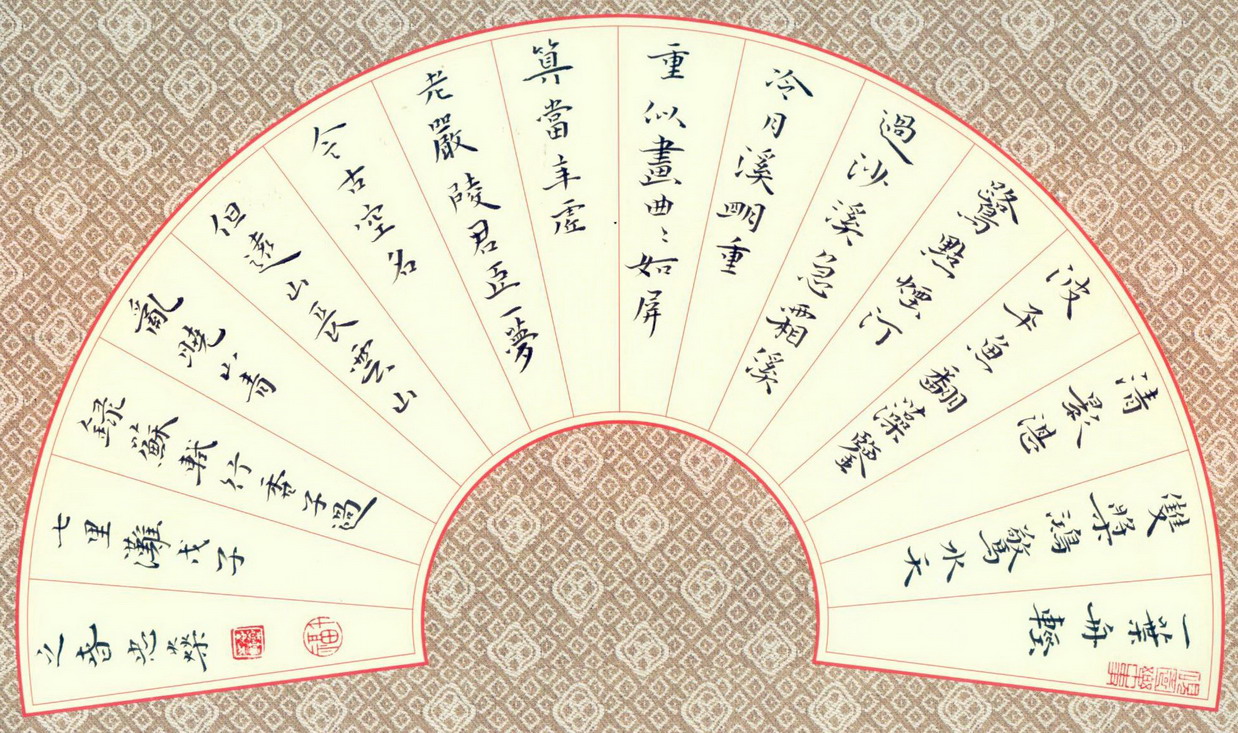 一葉舟輕
雙槳鴻驚水天
清影湛
波平魚翻藻鑒
鷺點煙汀
過沙溪急霜溪
冷月溪明重
重似畫曲〻如屏
算當年虛
老嚴陵君臣一夢
今古空名
但遠山長雲山
亂曉山青
錄蘇軾行香子過
七里灘戊子
之春志榮